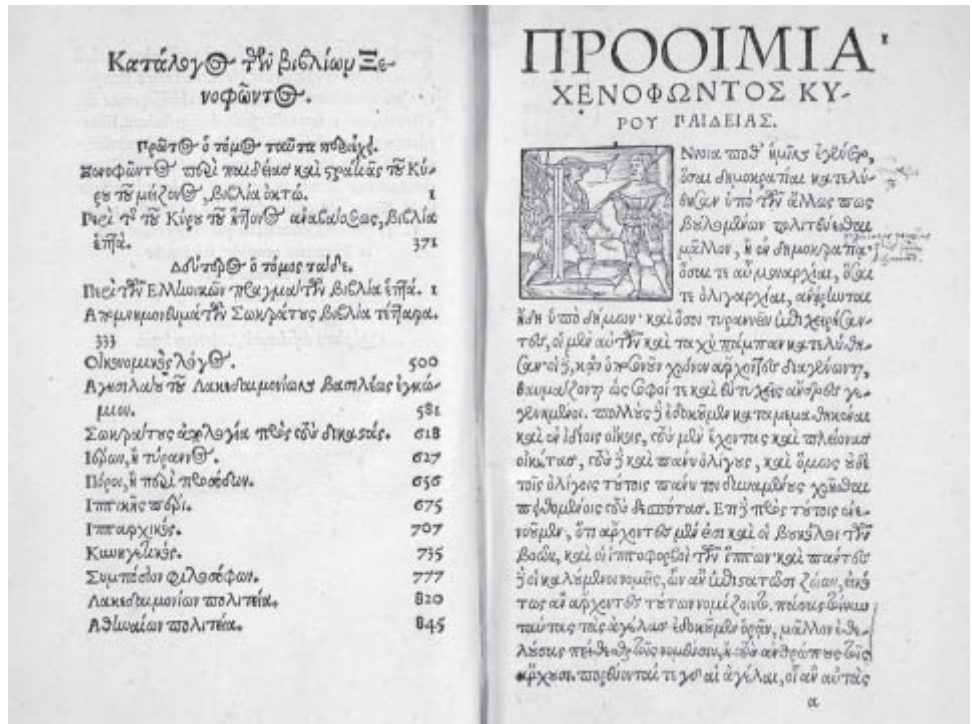 Κατάλογος τῶν βιβλίων Ξε-
νοφῶντος.
Πρῶτος ὁ τόμος ταῦτα περιέχει.
Ξενοφῶντος περὶ παιδείας καὶ τοῦ Κύ-
ρου τοῦ μείζονος, βιβλία ὀκτώ. 1
Περὶ τοῦ Κύρου τοῦ ἀναβάσεως, βιβλία
ἑπτά. 371
Δεύτερος ὁ τόμος τάδε.
Περὶ τῶν Ἑλληνικῶν πραγμάτων βιβλία ἑπτά. 1
Απομνημονευμάτων Σωκράτους βιβλία τέτταρα.
333
Οἰκονομικὸς λόγος. 500
Αγησιλάου τοῦ Λακεδαιμονίων βασιλέως ἐγκώ-
μιον. 581
Σωκράτους ἀπολογία πρὸς τοὺς δικαστάς. 618
Ιέρων, ἢ τύραννος. 627
Πόροι, ἢ περὶ προσόδων. 656
Ιππικῆς περί. 675
Ιππαρχικός. 707
Κυνηγετικός. 735
Συμπόσιον φιλοσόφων. 777
Λακεδαιμονίων πολιτεία. 820
Αθηναίων πολιτεία. 845
ΠΡΟΟΙΜΙΑ
ΧΕΝΟΦΩΝΤΟΣ ΚΥ-
ΡΟΥ ΠΑΙΔΕΙΑΣ.
Ννοια ποθ' ἡμῖν ἐγένετο,
ὅσαι δημοκρατίαι κατελύ-
θησαν ὑπὸ τῶν ἄλλως πως
βουλομένων πολιτεύεσθαι
μᾶλλον, ἢ ἐν δημοκρατίᾳ·
ὅσαι τε αὖ μοναρχίαι, ὅσαι
τε ὀλιγαρχίαι, ἀνῄρηνται
ἤδη ὑπὸ δήμων· καὶ ὅσοι τυραννεῖν ἐπιχειρήσαν-
τες, οἱ μὲν αὐτῶν καὶ ταχὺ πάμπαν κατελύθη-
σαν· οἱ δὲ, κἂν ὁποσονοῦν χρόνον ἄρχοντες διαγένωνται,
θαυμάζονται ὡς σοφοί τε καὶ εὐτυχεῖς ἄνδρες γε-
γενημένοι. πολλοὺς δὲ ἐδοκοῦμεν καταμεμαθηκέναι
καὶ ἐν ἰδίοις οἴκοις, τοὺς μὲν ἔχοντας καὶ πλείονας
οἰκέτας, τοὺς δὲ καὶ πάνυ ὀλίγους, καὶ ὅμως οὐδὲ
τοῖς ὀλίγοις τούτοις πάνυ τοι δυναμένους χρῆσθαι
πειθομένοις τοὺς δεσπότας. Επὶ δὲ πρὸς τούτοις ἐνε-
νοοῦμεν, ὅτι ἄρχοντες μέν εἰσι καὶ οἱ βουκόλοι τῶν
βοῶν, καὶ οἱ ἱπποφορβοὶ τῶν ἵππων· καὶ πάντες
δὲ οἱ καλούμενοι νομεῖς, ὧν ἂν ἐπιστατῶσι ζώων, εἰκό
τως ἂν ἄρχοντες τούτων νομίζοιντο. πάσας τοίνυν
ταύτας τὰς ἀγέλας ἐδοκοῦμεν ὁρᾶν, μᾶλλον ἐθε-
λούσας πείθεσθαι τοῖς νομεῦσιν, ἢ τοὺς ἀνθρώπους τοῖς
ἄρχουσι. πορεύονταί τε γὰρ αἱ ἀγέλαι, οἷ ἂν αὐτὰς
α